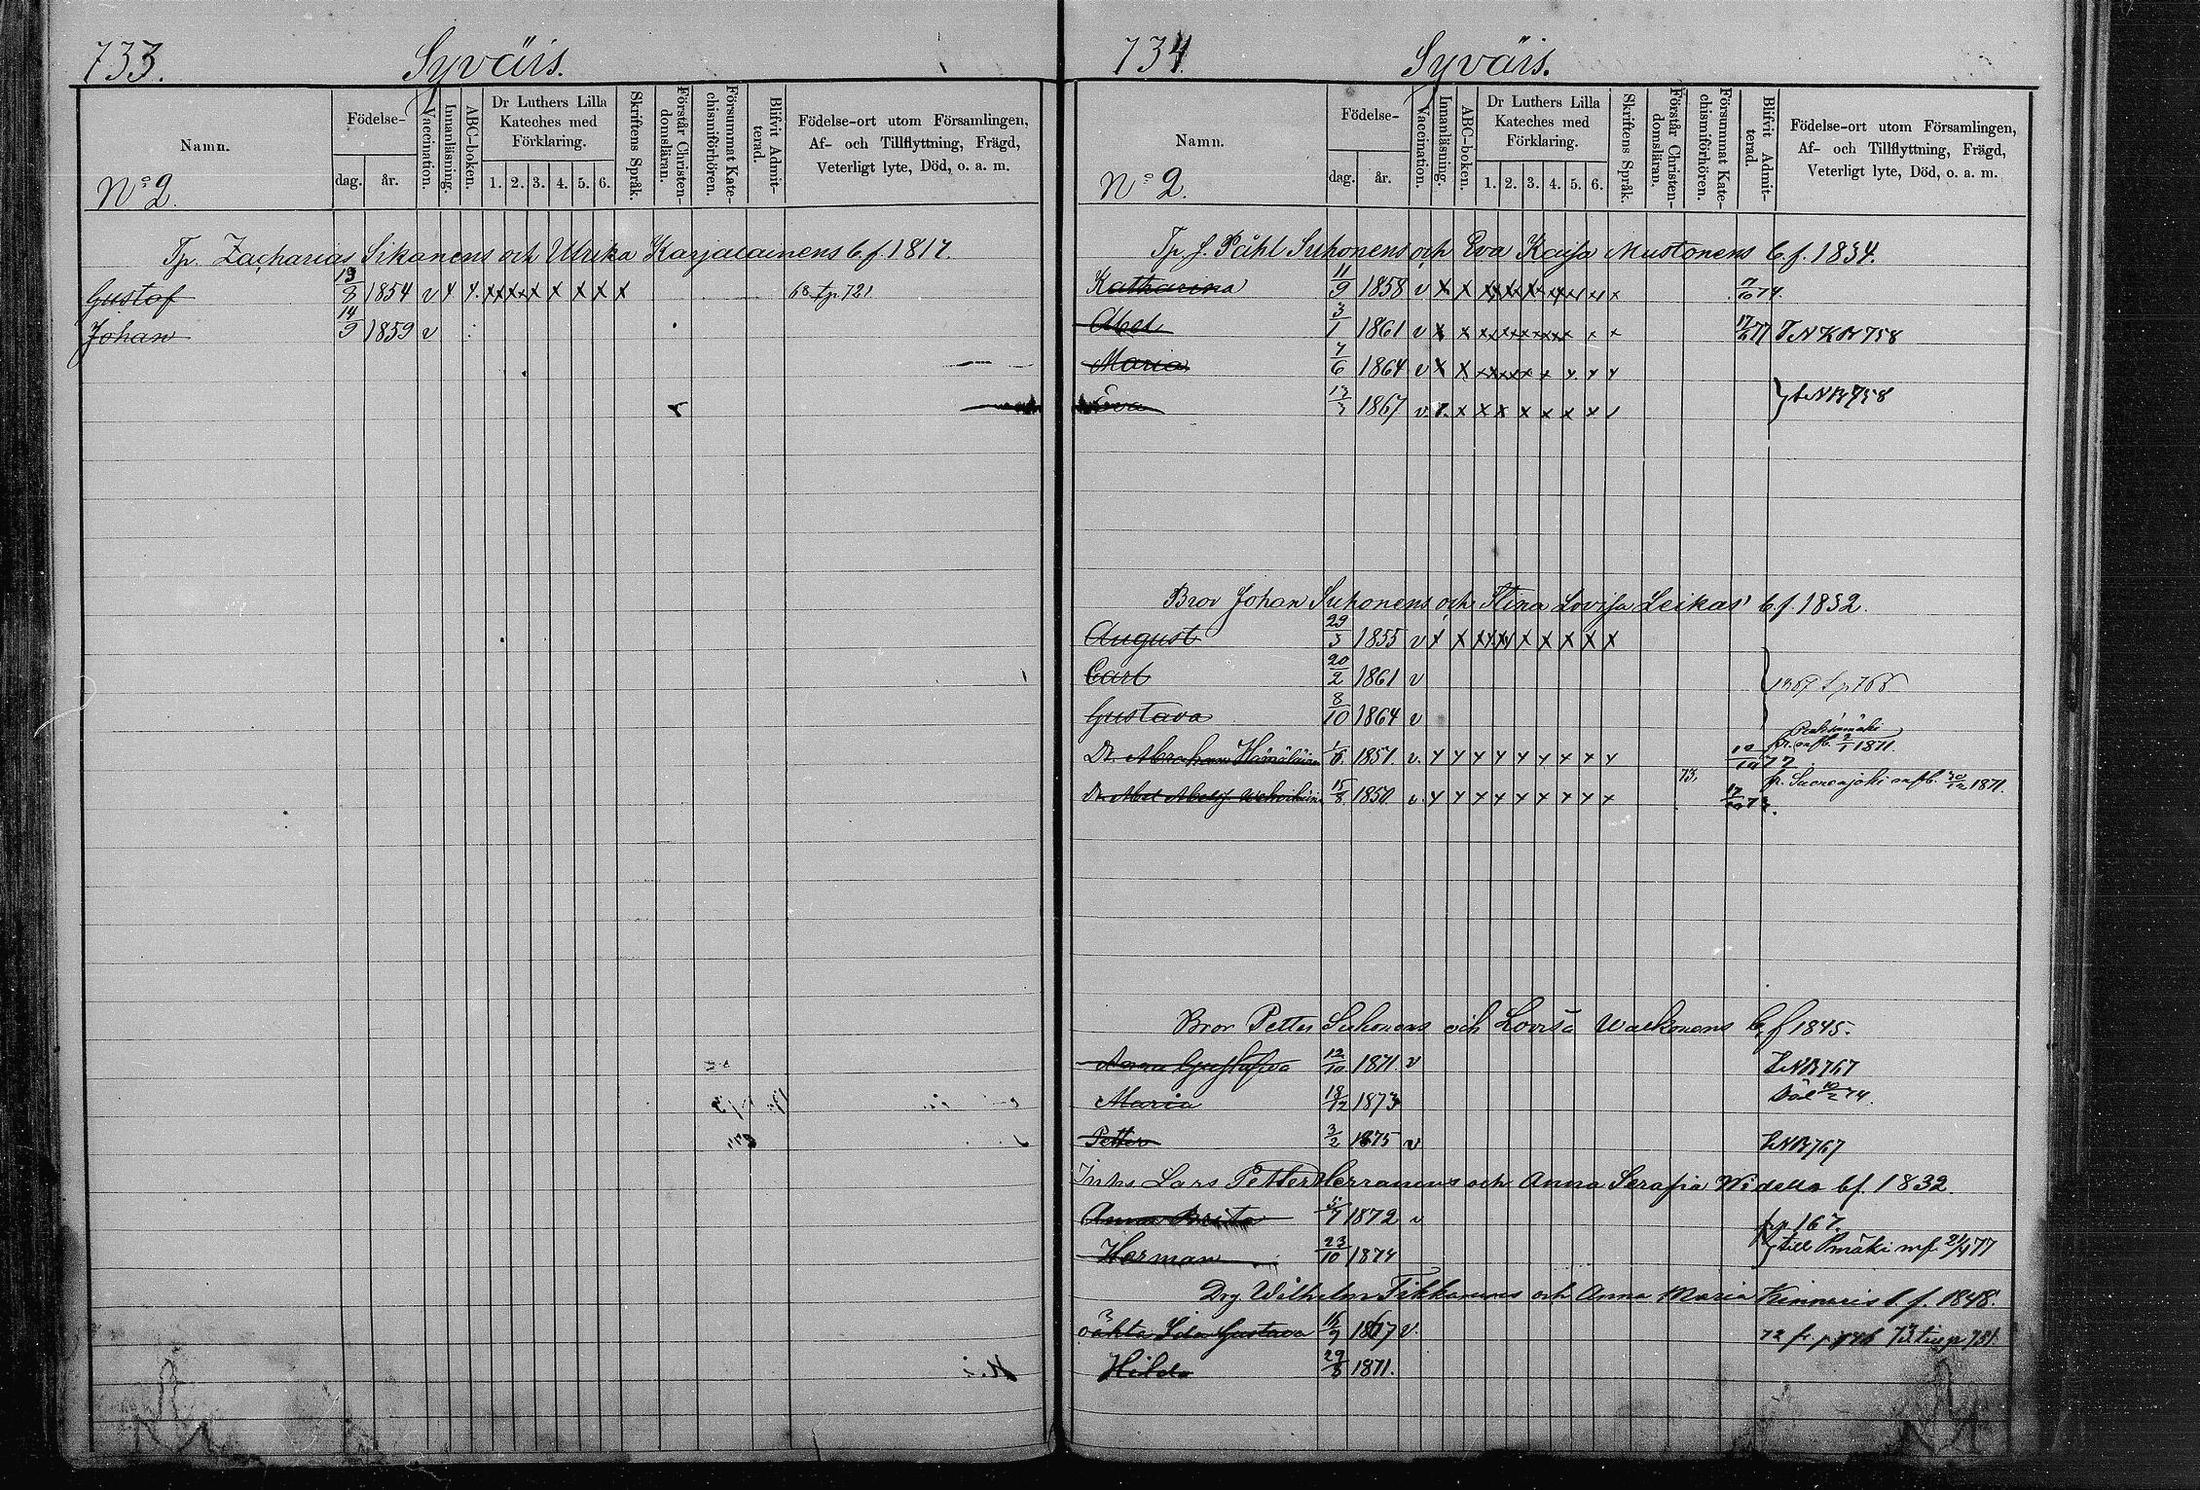 733. Syväis.
Namn.
Födelse-
dag. år.
Vaccination.
Innanläsning.
ABC-boken.
Dr Luthers Lilla
Kateches med
Förklaring.
1. 2. 3. 4. 5. 6.
Skriftens Språk.
Förstår Christen-
domsläran.
Försummat Kate-
chismiförhören.
Blifvit Admit-
terad.
Födelse-ort utom Församlingen,
Af- och Tillflyttning, Frägd,
Veterligt lyte, Död, o. a. m.
No 2.
Tp. Zacharias Sikanens och Ulrika Karjalainens b.f. 1817.
Gustof 19/8 1854 v x x. x x x x x x x x 68 tp. 721
Johan 14/9 1859 v
734. Syväis.
Namn.
Födelse-
dag. år.
Vaccination.
Innanläsning.
ABC-boken.
Dr Luthers Lilla
Kateches med
Förklaring.
1. 2. 3. 4. 5. 6.
Skriftens Språk.
Förstår Christen-
domsläran.
Försummat Kate-
chismiförhören.
Blifvit Admit-
terad.
Födelse-ort utom Församlingen,
Af- och Tillflyttning, Frägd,
Veterligt lyte, Död, o. a. m.
No 2.
Tp. f. Påhl Suhonens och Eva Kaisa Mustonens b.f. 1834.
Katharina 11/9 1858 v x x x x x x x x x
Abel 3/1 1861 v x x x x x x x x x 758
Maria 7/6 1864 v x x x x x x x x x
Eva 13/3 1867 v. x x x x x x x 758
Bror Johan Suhonens och Stina Lovisa Leikas' b.f. 1832.
August 29/3 1855 v x x x x x x x x x
Carl 20/2 1861 v
Gustava 8/10 1864 v
Dr. Abraham Hämäläinen 1851. v. x x x x x x x x x fr. 1871.
Dr. Abel 15/8 1850. v. x x x x x x x x x 73, fr. 1871.
Bror Petter Suhonens och Lovisa b.f 1845.
Anna Gustafva 12/10 1871. v 767
Maria 1873 Död 74.
Petter 3/2 1875 v 767
Inhs Lars Petter Herranens och Anna Serafia b.f. 1832.
Anna Brita 1872 v p 167.
Herman 23/10 1874 till Pmäki 77
Drg Wilhelm Tikkanens och Anna Maria Kinnaris b.f. 1848.
oäkta Ida Gustava 1867 v. 72 fr. p 751.
Hilda 29/8 1871.